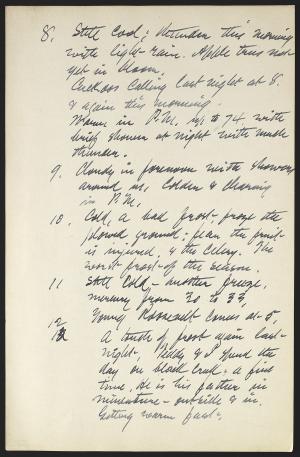 8. Still Cool; thunder this morning
with light rain. Apple trees not
yet in bloom.
Cuckoos calling last night at 8.
& again this morning.
Warm in P.M. up to 74 with
brisk shower at night with much
thunder.
9. Cloudy in forenoon with showers
around us. Colder & clearing
in P.M.
10. Cold, a bad frost, froze the
plowed ground; fear the fruit
is injured, & the Celery. The
worst frost of the season.
11 Still Cold - another freeze,
mercury from 30 to 33,
Young Roosevelt comes at 5,
12
A touch of frost again last
night. Teddy & I spend the
day on black Creek; a fine
time. He is his father in
miniature - outside & in.
Getting warm fast.